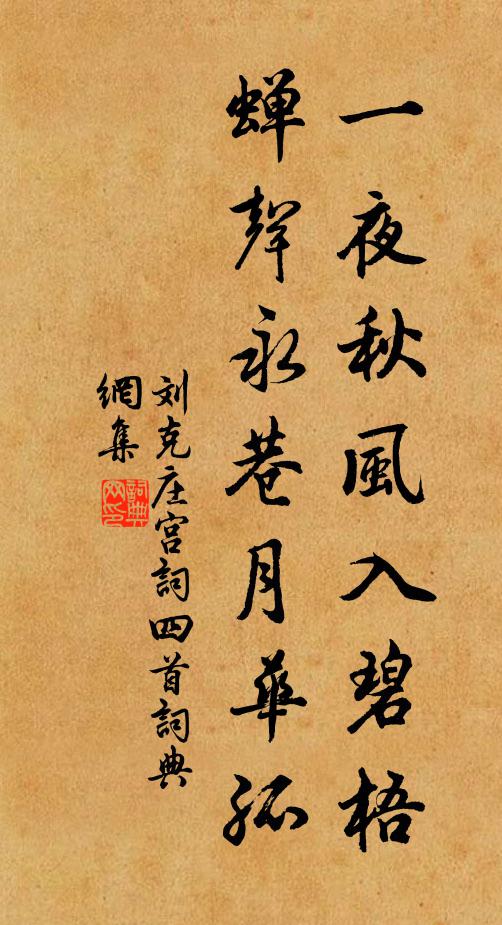 一夜秋風入碧梧
蟬聲永巷月華孤
刘克庄宫詞四首詞典
網集
詞典網印